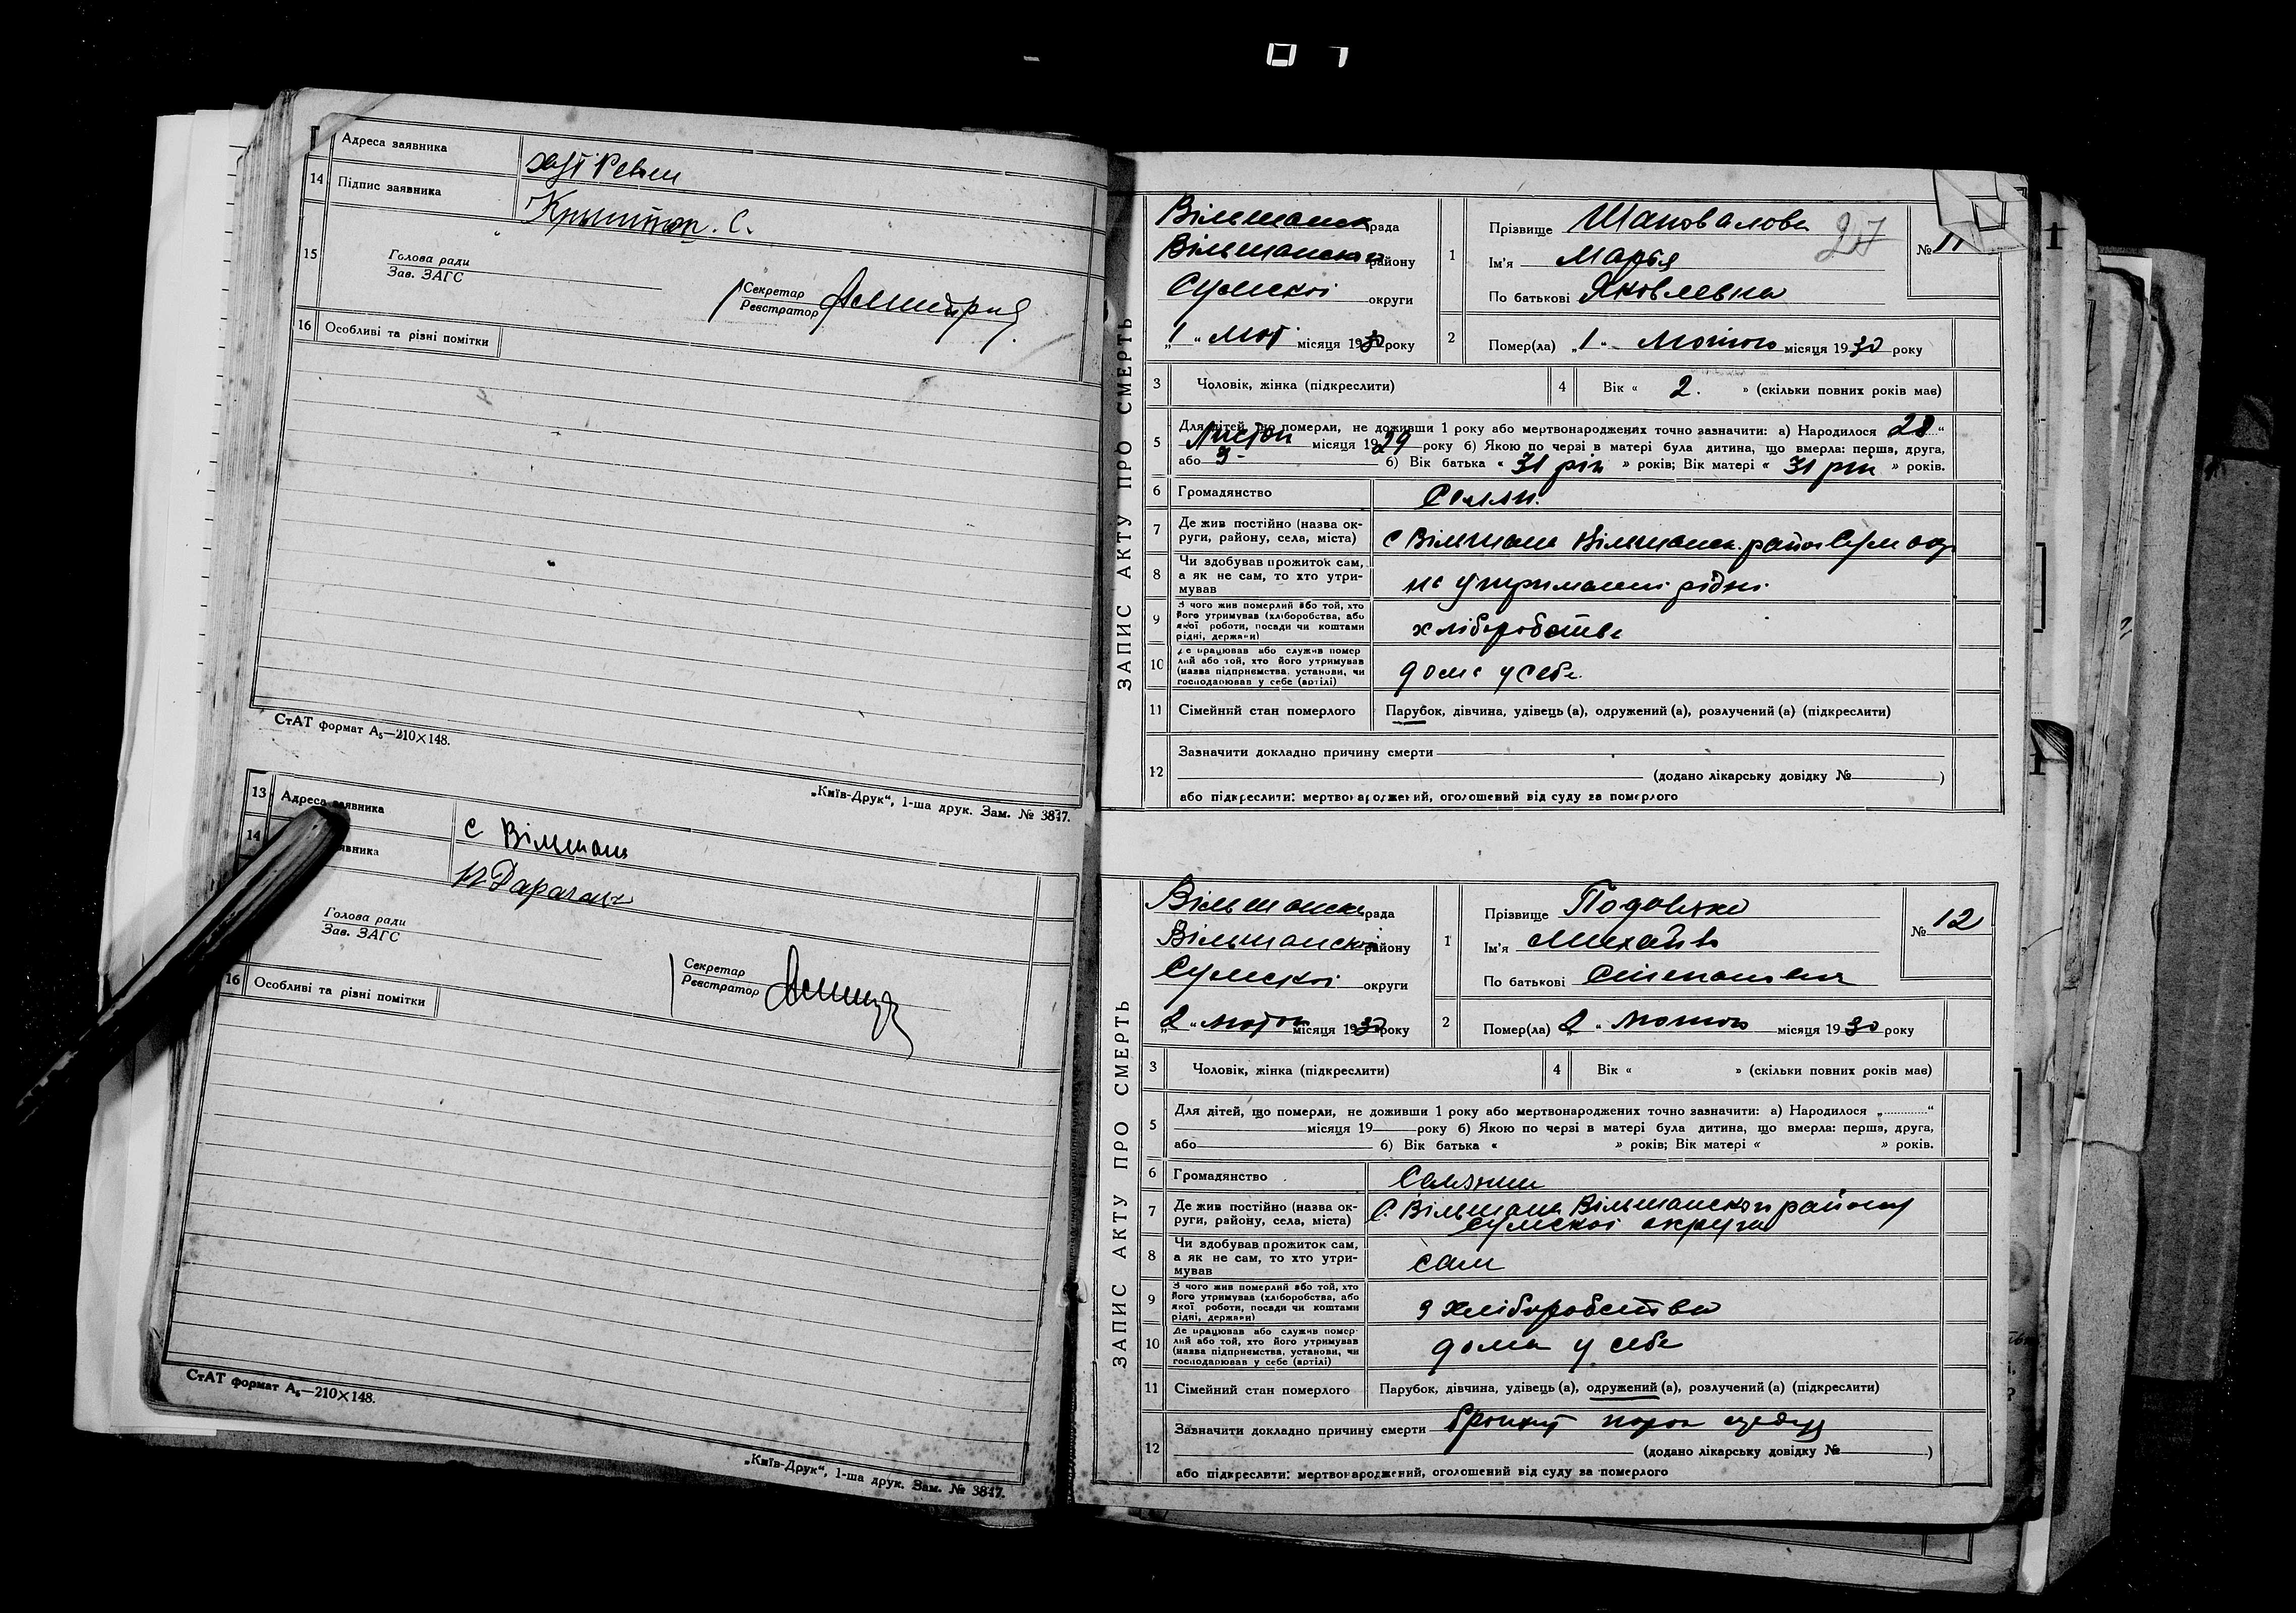 Адреса заявника
14 Підпис заявника
Крыштоп. С.
15
Голова ради
Зав. ЗАГС
Секретар
Реєстратор
16 Особливі та різні помітки
СтАТ формат А₅—210×148.
„Київ-Друк“, 1-ша друк. Зам. № 3847.
13 Адреса заявника с Вільшана
14 явника
Голова ради
Зав. ЗАГС
Секретар
Реєстратор
16 Особливі та різні помітки
СтАТ формат А₅—210×148.
„Київ-Друк“, 1-ша друк. Зам. № 3847.
27
ЗАПИС АКТУ ПРО СМЕРТЬ
Вільшанск рада
Вільшанской району
Сумскої округи
„1“ Лют місяця 1930 року
1 Прізвище Шаповалова
№ 11
Ім'я Марья
По батькові Яковлевна
2 Помер(ла) „1“ Лютого місяця 1930 року
3 Чоловік, жінка (підкреслити)
4 Вік « 2. » (скільки повних років має)
5 Для дітей, що померли, не доживши 1 року або мертвонароджених точно зазначити: а) Народилося 28“
Листоп місяця 1929 року б) Якою по черзі в матері була дитина, що вмерла: перша, друга,
або 3- б) Вік батька « 31 рік » років; Вік матері « 31 рік » років.
6 Громадянство Селян.
7 Де жив постійно (назва ок-
руги, району, села, міста) с Вільшана Вільшанск. район Сум окр
8 Чи здобував прожиток сам,
а як не сам, то хто утри-
мував на утриманні рідні
9 З чого жив померлий або той, хто
його утримував (хліборобства, або
якої роботи, посади чи коштами
рідні, держави) хліборобства
10 Де працював або служив помер
лий або той, хто його утримував
(назва підприємства, установи, чи
господарював у себе (артілі) дома у себе
11 Сімейний стан померлого Парубок, дівчина, удівець (а), одружений (а), розлучений (а) (підкреслити)
12 Зазначити докладно причину смерти
(додано лікарську довідку № )
або підкреслити: мертвонароджений, оголошений від суду за померлого
ЗАПИС АКТУ ПРО СМЕРТЬ
Вільшанска рада
Вільшанскої району
Сумскої округи
„2“ лютого місяця 1930 року
1 Прізвище
№ 12
Ім'я Михайло
По батькові Степанович
2 Помер(ла) 2 “ Лютого місяця 1930 року
3 Чоловік, жінка (підкреслити)
4 Вік « » (скільки повних років має)
5 Для дітей, що померли, не доживши 1 року або мертвонароджених точно зазначити: а) Народилося „ “
місяця 19 року б) Якою по черзі в матері була дитина, що вмерла: перша, друга,
або б) Вік батька « » років; Вік матері « » років.
6 Громадянство Селянин
7 Де жив постійно (назва ок-
руги, району, села, міста) С. Вільшана Вільшанского району
Сумскої округи
8 Чи здобував прожиток сам,
а як не сам, то хто утри-
мував сам
9 З чого жив померлий або той, хто
його утримував (хліборобства, або
якої роботи, посади чи коштами
рідні, держави) з хліборобства
10 Де працював або служив помер-
лий або той, хто його утримував
(назва підприємства, установи, чи
господарював у себе (артілі) дома у себе
11 Сімейний стан померлого Парубок, дівчина, удівець (а), одружений (а), розлучений (а) (підкреслити)
12 Зазначити докладно причину смерти бронхит порок
(додано лікарську довідку № )
або підкреслити: мертвонароджений, оголошений від суду за померлого